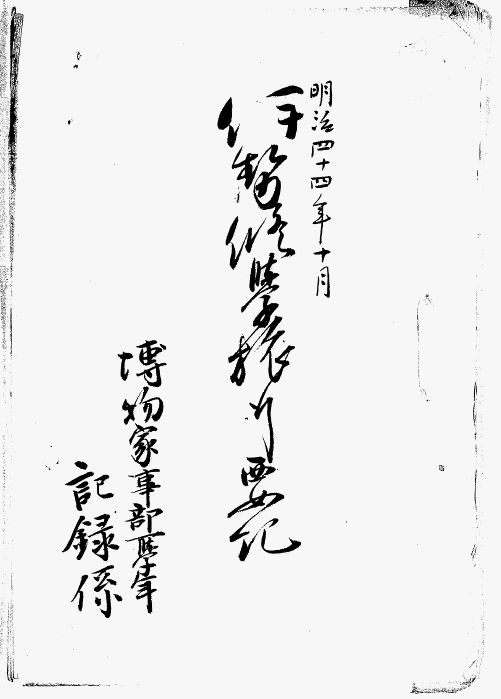 明治四十四年十月
伊勢修學旅行要記
博物家事部一學年
記録係